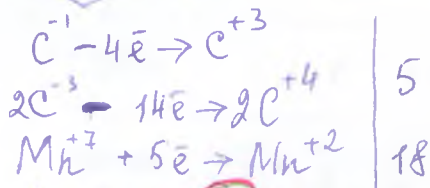 C⁻¹ - 4ē → C⁺³
2C⁻³ - 14ē → 2C⁺⁴ | 5
Mn⁺⁷ + 5ē → Mn⁺² | 18